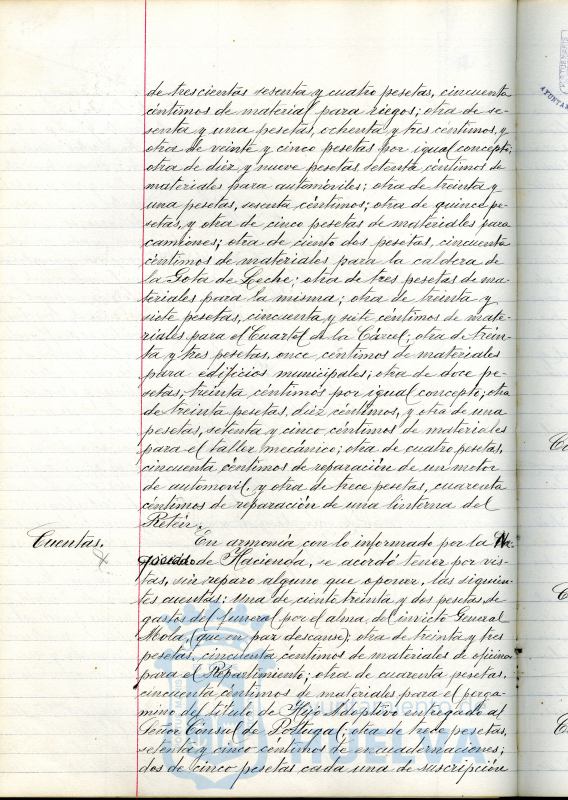 de trescientas sesenta y cuatro pesetas, cincuenta
céntimos de material para riegos; otra de se-
senta y una pesetas, ochenta y tres centimos, y
otra de veinte y cinco pesetas por igual concepto;
otra de diez y nueve pesetas setenta céntimos de
materiales para automóviles; otra de treinta y
una pesetas, sesenta céntimos; otra de quince pe-
setas, y otra de cinco pesetas de materiales para
camiones; otra de ciento dos pesetas, cincuenta
céntimos de materiales para la caldera de
la Gota de Leche; otra de tres pesetas de ma-
teriales para la misma; otra de treinta y
siete pesetas, cincuenta y siete céntimos de mate-
riales para el Cuartel de la Cárcel; otra de trein-
ta y tres pesetas, once céntimos de materiales
para edificios municipales; otra de doce pe-
setas, treinta céntimos por igual concepto; otra
de treinta pesetas, diez céntimos, y otra de una
pesetas, setenta y cinco céntimos de materiales
para el taller mecánico; otra de cuatro pesetas,
cincuenta céntimos de reparación de un motor
de automovil, y otra de trece pesetas, cuarenta
céntimos de reparación de una linterna del
Retén.
Cuentas. En armonía con lo informado por la Ne-
gociado de Hacienda, se acordó tener por vis-
tas, sin reparo alguno que oponer, las siguien-
tes cuentas: Una de ciento treinta y dos pesetas, de
gastos del funeral por el alma del invicto General
Mola, (que en paz descanse); otra de treinta y tres
pesetas, cincuenta céntimos de materiales de oficina
para el Repartimiento; otra de cuarenta pesetas,
cincuenta céntimos de materiales para el perga-
mino del título de Hijo Adoptivo entregado al
Señor Cónsul de Portugal; otra de trece pesetas,
setenta y cinco céntimos de encuadernaciones;
dos de cinco pesetas cada una de suscripción
Ayuntamiento de
HUELVA